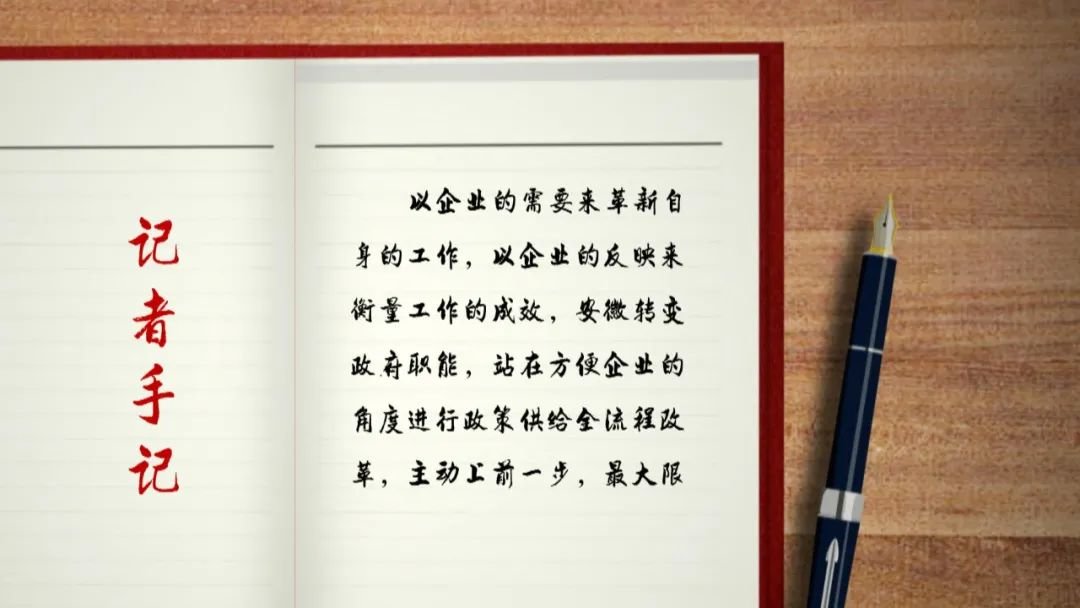 记者手记
以企业的需要来革新自
身的工作，以企业的反映来
衡量工作的成效，安徽转变
政府职能，站在方便企业的
角度进行政策供给全流程改
革，主动上前一步，最大限